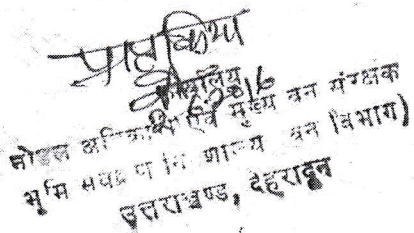 प्राप्त किया
कार्यालय
नोडल अधिकारी एवं मुख्य वन संरक्षक
भूमि सर्वेक्षण नि शालय वन विभाग)
उत्तराखण्ड, देहरादून